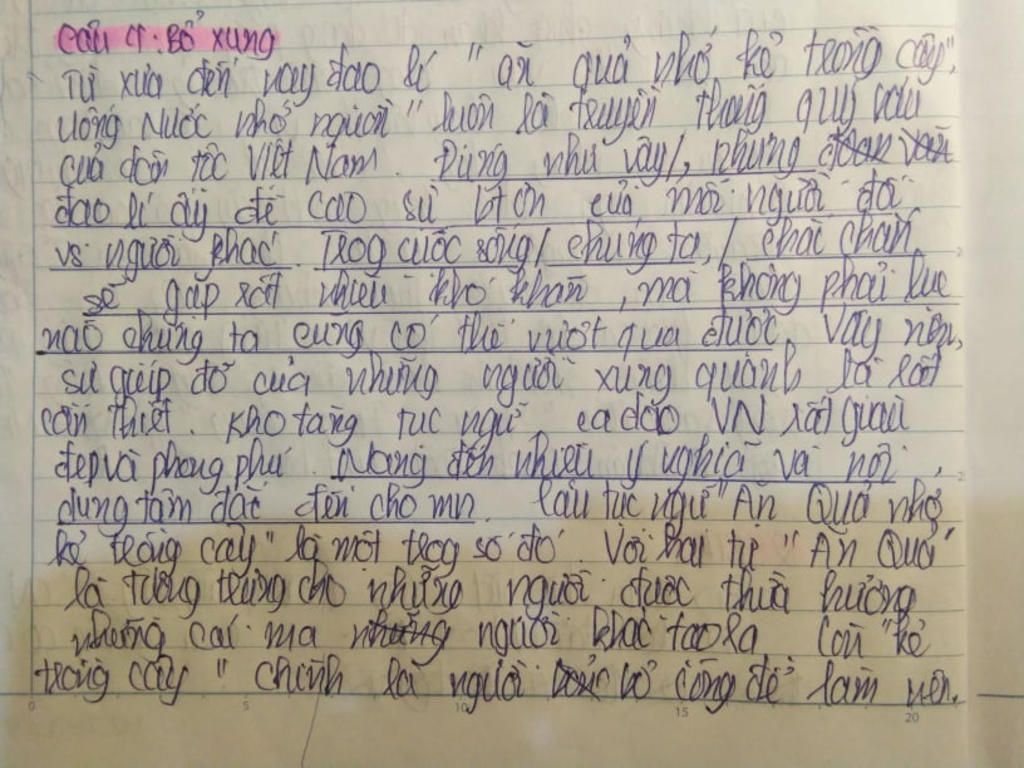 Câu 4: Bổ xung
Từ xưa đến nay đạo lí "ăn quả nhớ kẻ trồng cây",
uống nước nhớ nguồn" luôn là truyền thống quý báu
của dân tộc Việt Nam. Đúng như vậy, nhưng
đạo lí ấy đề cao sự btơn của mỗi người đối
vs người khác. Trog cuộc sống, chúng ta, chắc chắn
sẽ gặp rất nhiều khó khăn, mà không phải lúc
nào chúng ta cũng có thể vượt qua được. Vậy nên,
sự giúp đỡ của những người xung quanh là rất
cần thiết. Kho tàng tục ngữ, ca dao VN rất giàu
đẹp và phong phú. Mang đến nhiều ý nghĩa và nội
dung tâm đắc đến cho mn. Câu tục ngữ "Ăn Quả nhớ
kẻ trồng cây" là một trog số đó. Với hai từ "Ăn Quả"
là tượng trưng cho những người được thừa hưởng
những cái mà người khác tạo ra. Còn "kẻ
trồng cây" chính là người bỏ công để làm nên.
0 5 10 15 20